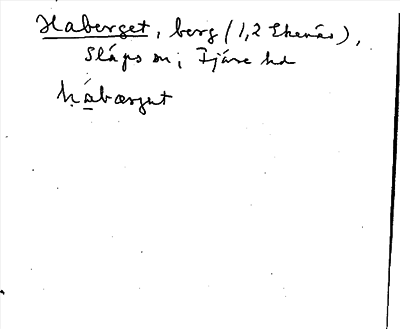 Haberget, berg (1,2 Ekenäs),
Släps sn, Fjäre hd
hábærgut